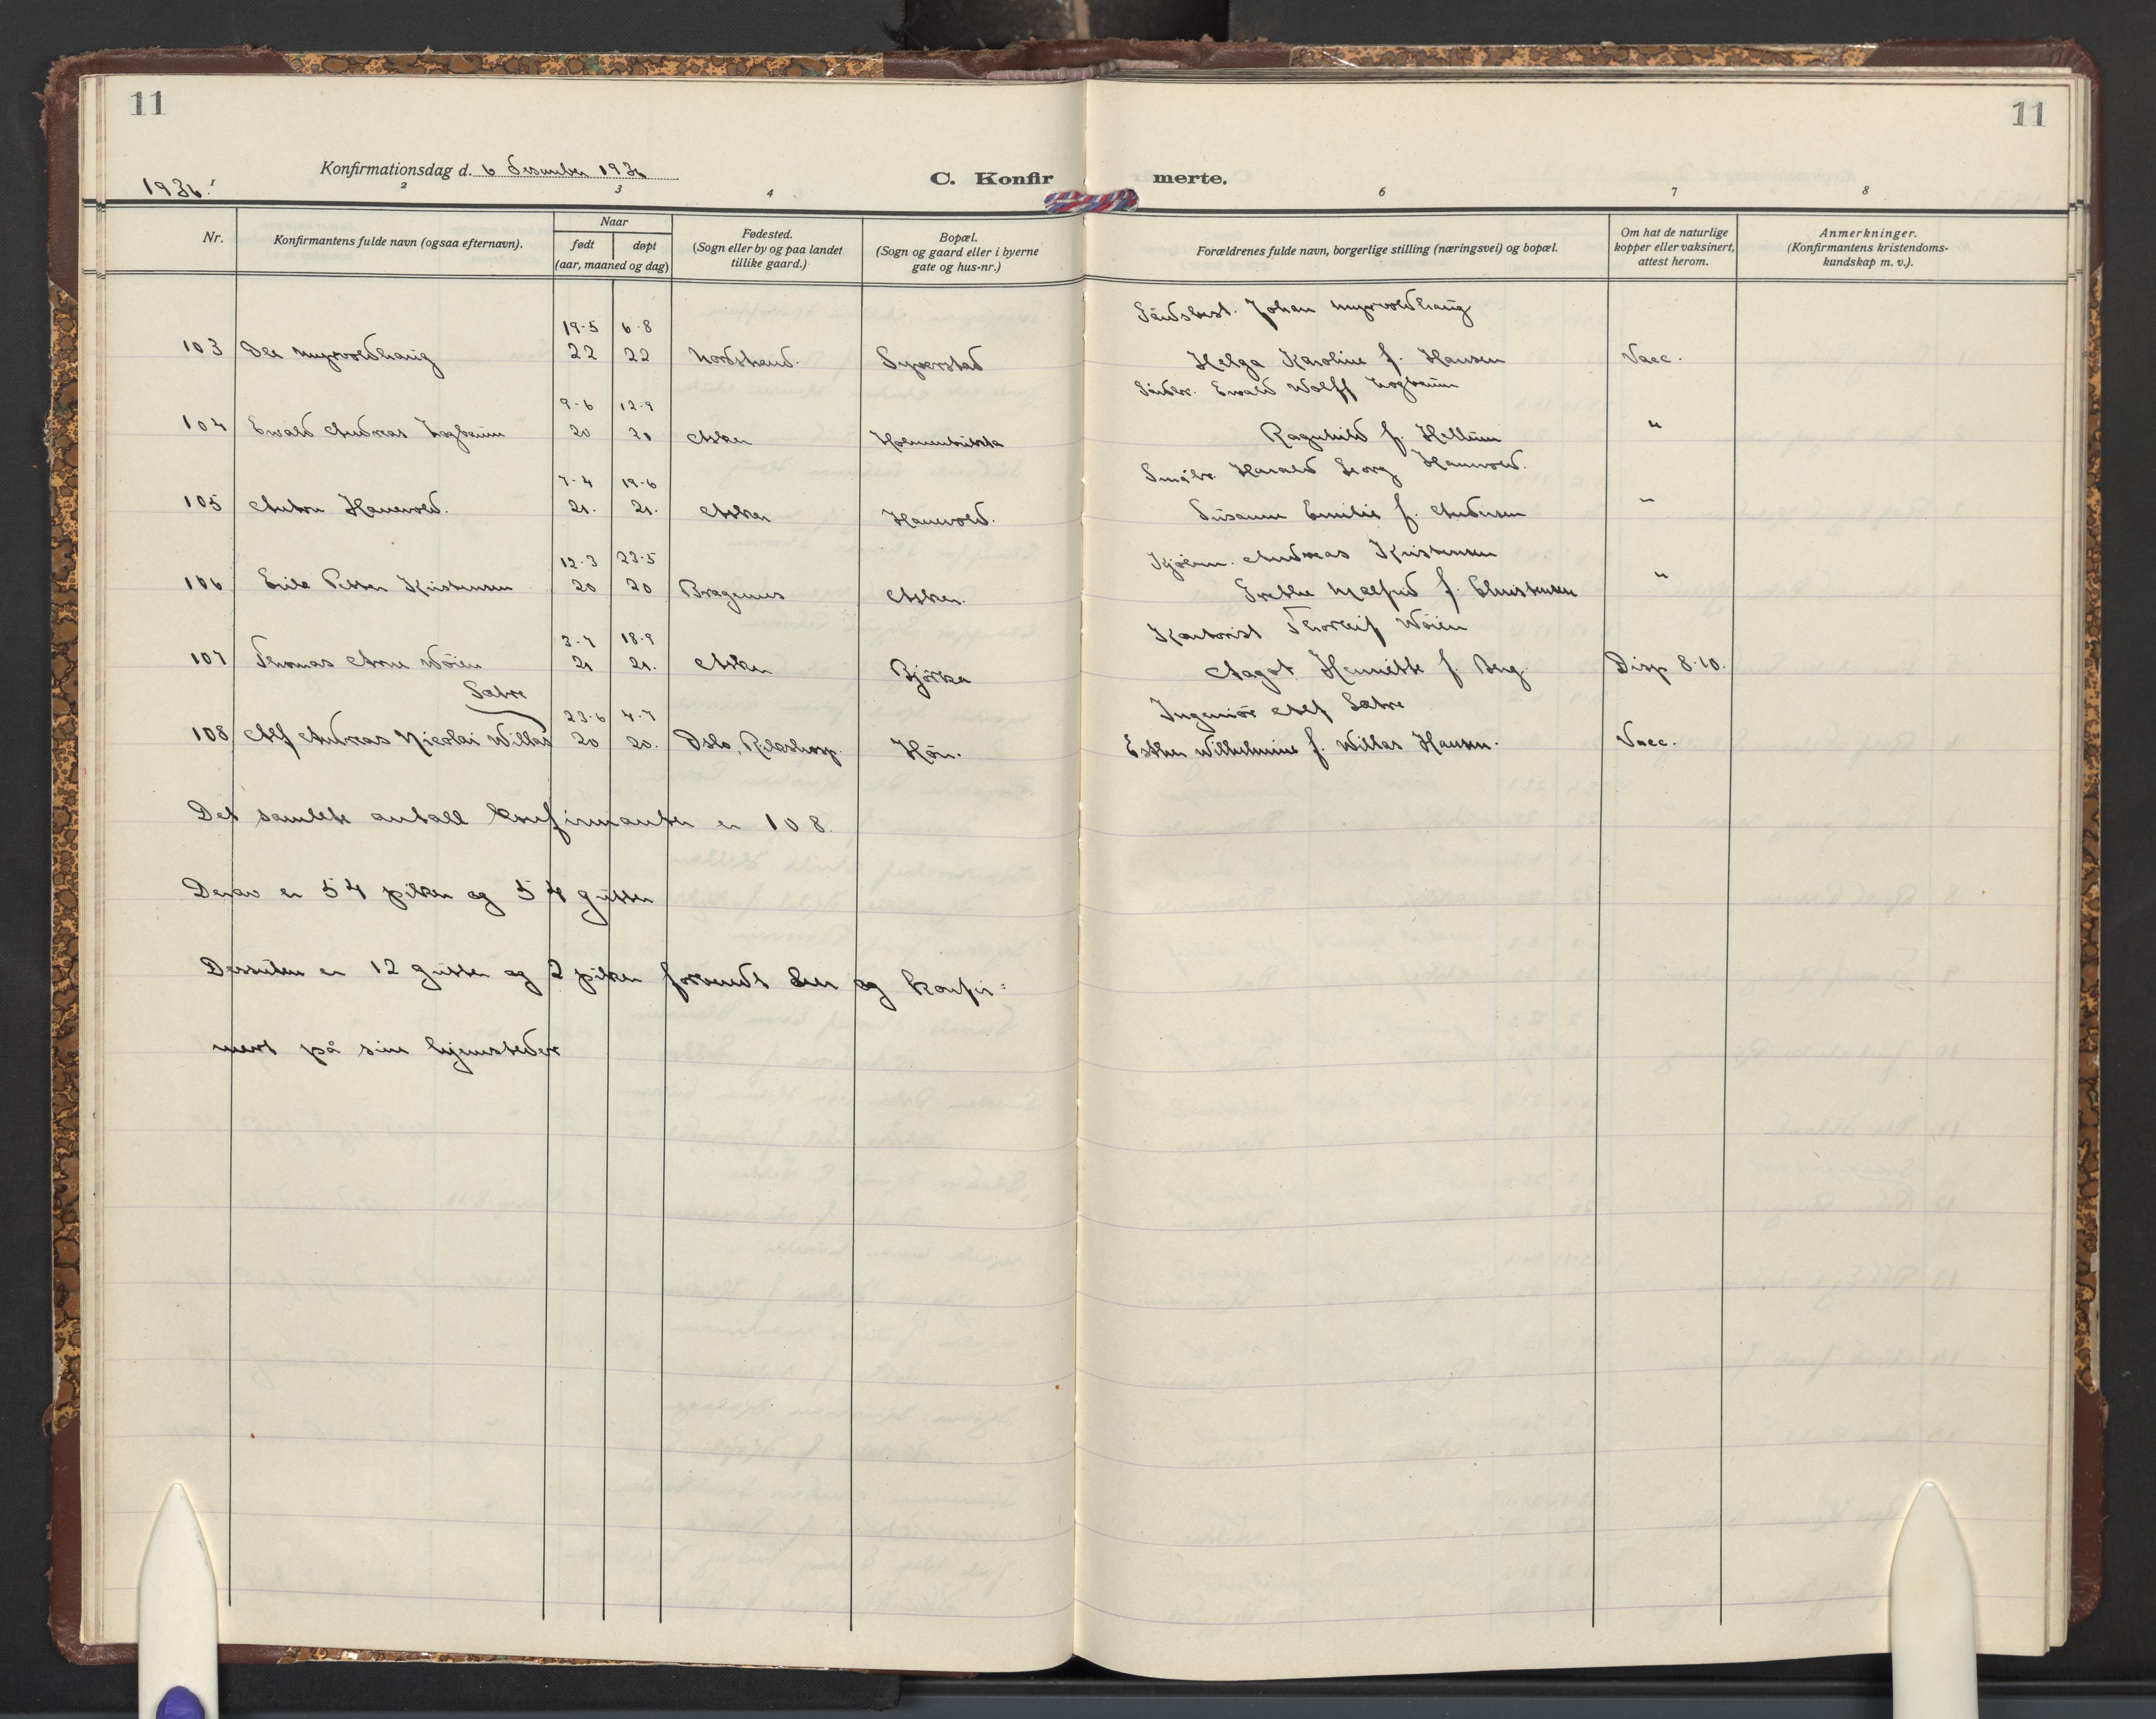 11
11
1936.
Konfirmationsdag d. 6 desember 1936
C. Konfirmerte.
2 3 4 6 7 8
Nr.
Konfirmantens fulde navn (ogsaa efternavn).
Naar
født døpt
(aar, maaned og dag)
Fødested.
(Sogn eller by og paa landet
tillike gaard.)
Bopæl.
(Sogn og gaard eller i byerne
gate og hus-nr.)
Forældrenes fulde navn, borgerlige stilling (næringsvei) og bopæl.
Om hat de naturlige
kopper eller vaksinert,
attest herom.
Anmerkninger.
(Konfirmantens kristendoms-
kundskap m. v.).
19-5 6-8 Johan Myrvoldhaug
103 Ole Myrvoldhaug 22 22 Nordstrand. Syverstad Helga Karoline f. Hansen Vacc.
9-6 12-9 Ewald Wolff Logbaum
104 Ewald Andreas Logbaum 20 20 Asker Ragnhild f. Hellum "
7-4 19-6 Småbr. Harald Georg Hanevold.
105 Anton Hanevold. 21. 21. Asker Hanevold. Susanne Emilie f. Andersen "
12-3 23-5 Kjøbm. Andreas Kristensen
106 Erik Petter Kristensen 20 20 Bragernes Asker. Grethe Malfrid f. Christensen "
3-7 18-9 Kontorist Thorleif Wöien
107 Thomas Arne Wöien 21 21. Asker Bjørka Aagot Henriette f. Berg. Disp 8-10.
Sætre 23-6 4-7 Ingeniør Alf Sætre
108 Alf Andreas Nicolai Willas 20 20. Oslo, Rikshosp. Høn. Esther Wilhelmine f. Willas Hansen. Vacc.
Det samlete antall konfirmanter er 108.
Derav er 54 piker og 54 gutter
Dessuten er 12 gutter og 2 piker forberedt her og konfir=
mert på sine hjemsteder